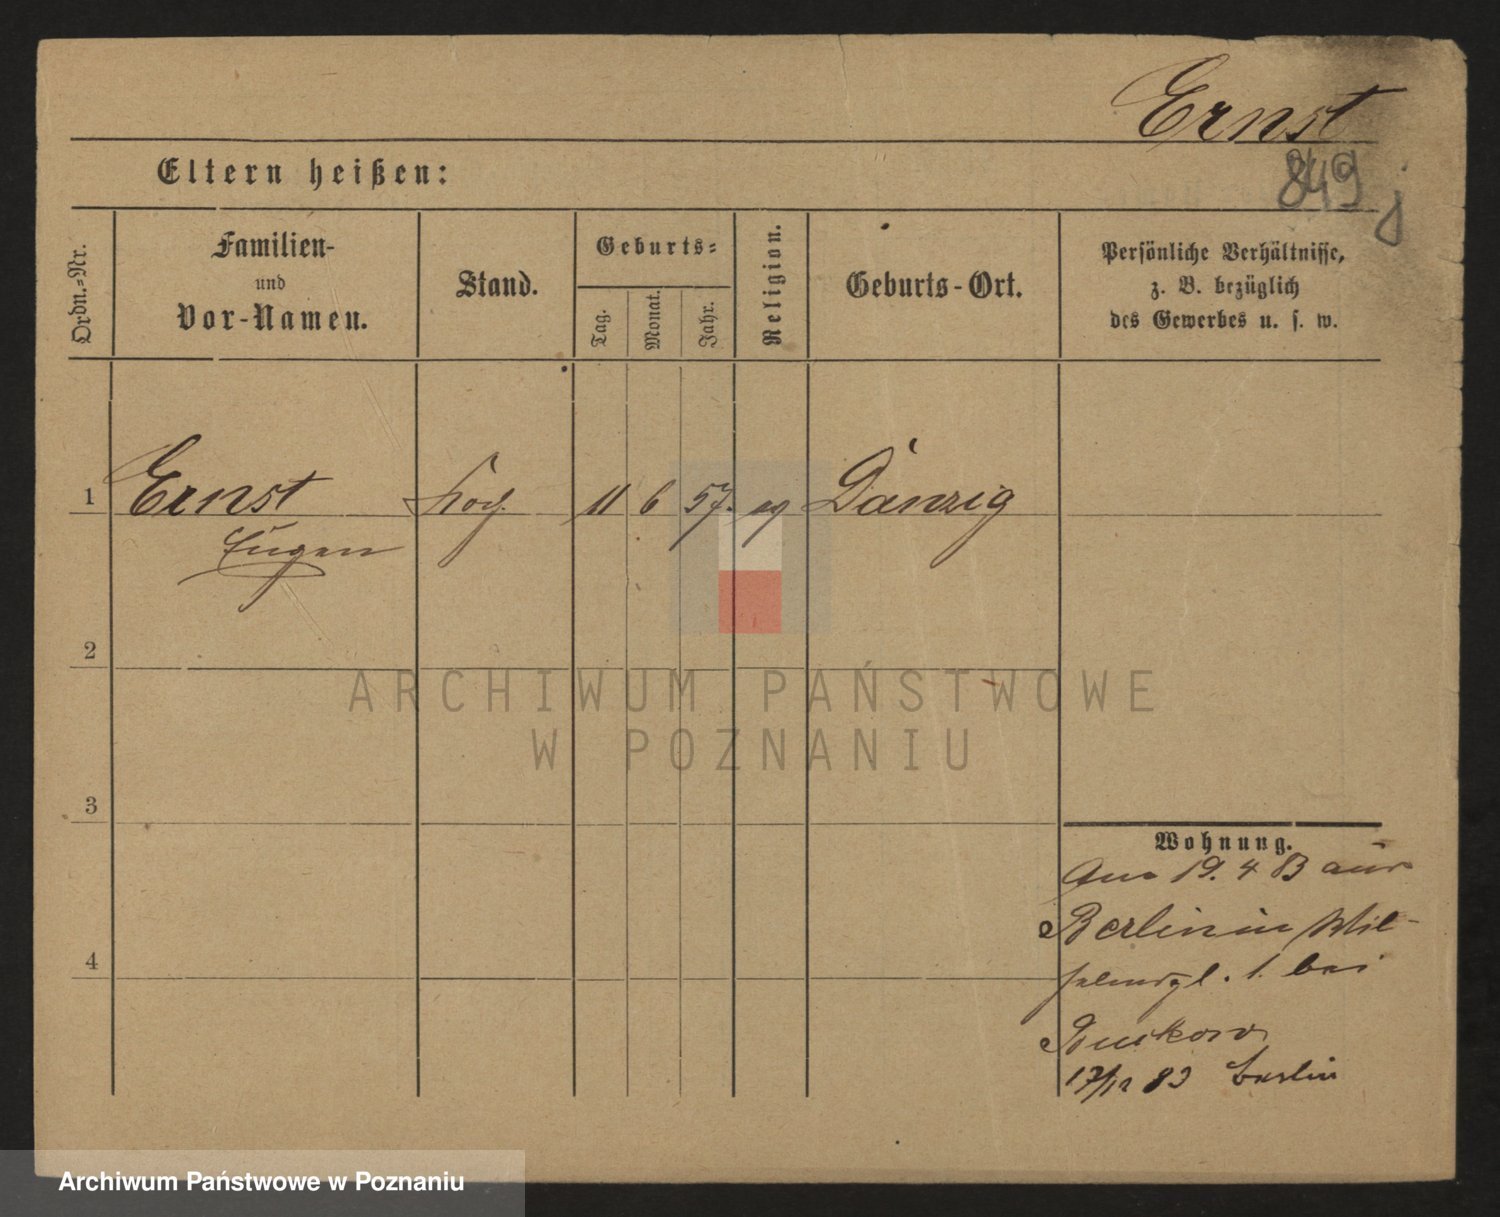 Ernst
849
Eltern heißen:
Ordn.=Nr.
Familien-
und
Vor-Namen.
Stand.
Geburts=
Tag.
Monat.
Jahr.
Religion.
Geburts-Ort.
Persönliche Verhältnisse,
z. B. bezüglich
des Gewerbes u. s. w.
1 Ernst Koch 11 6 57. Danzig
Eugen
2
3
4
Wohnung.
19. 4 83 aus
Berlin in Wil-
1. bei
17/12 83 Berlin
ARCHIWUM PAŃSTWOWE
W POZNANIU
Archiwum Państwowe w Poznaniu